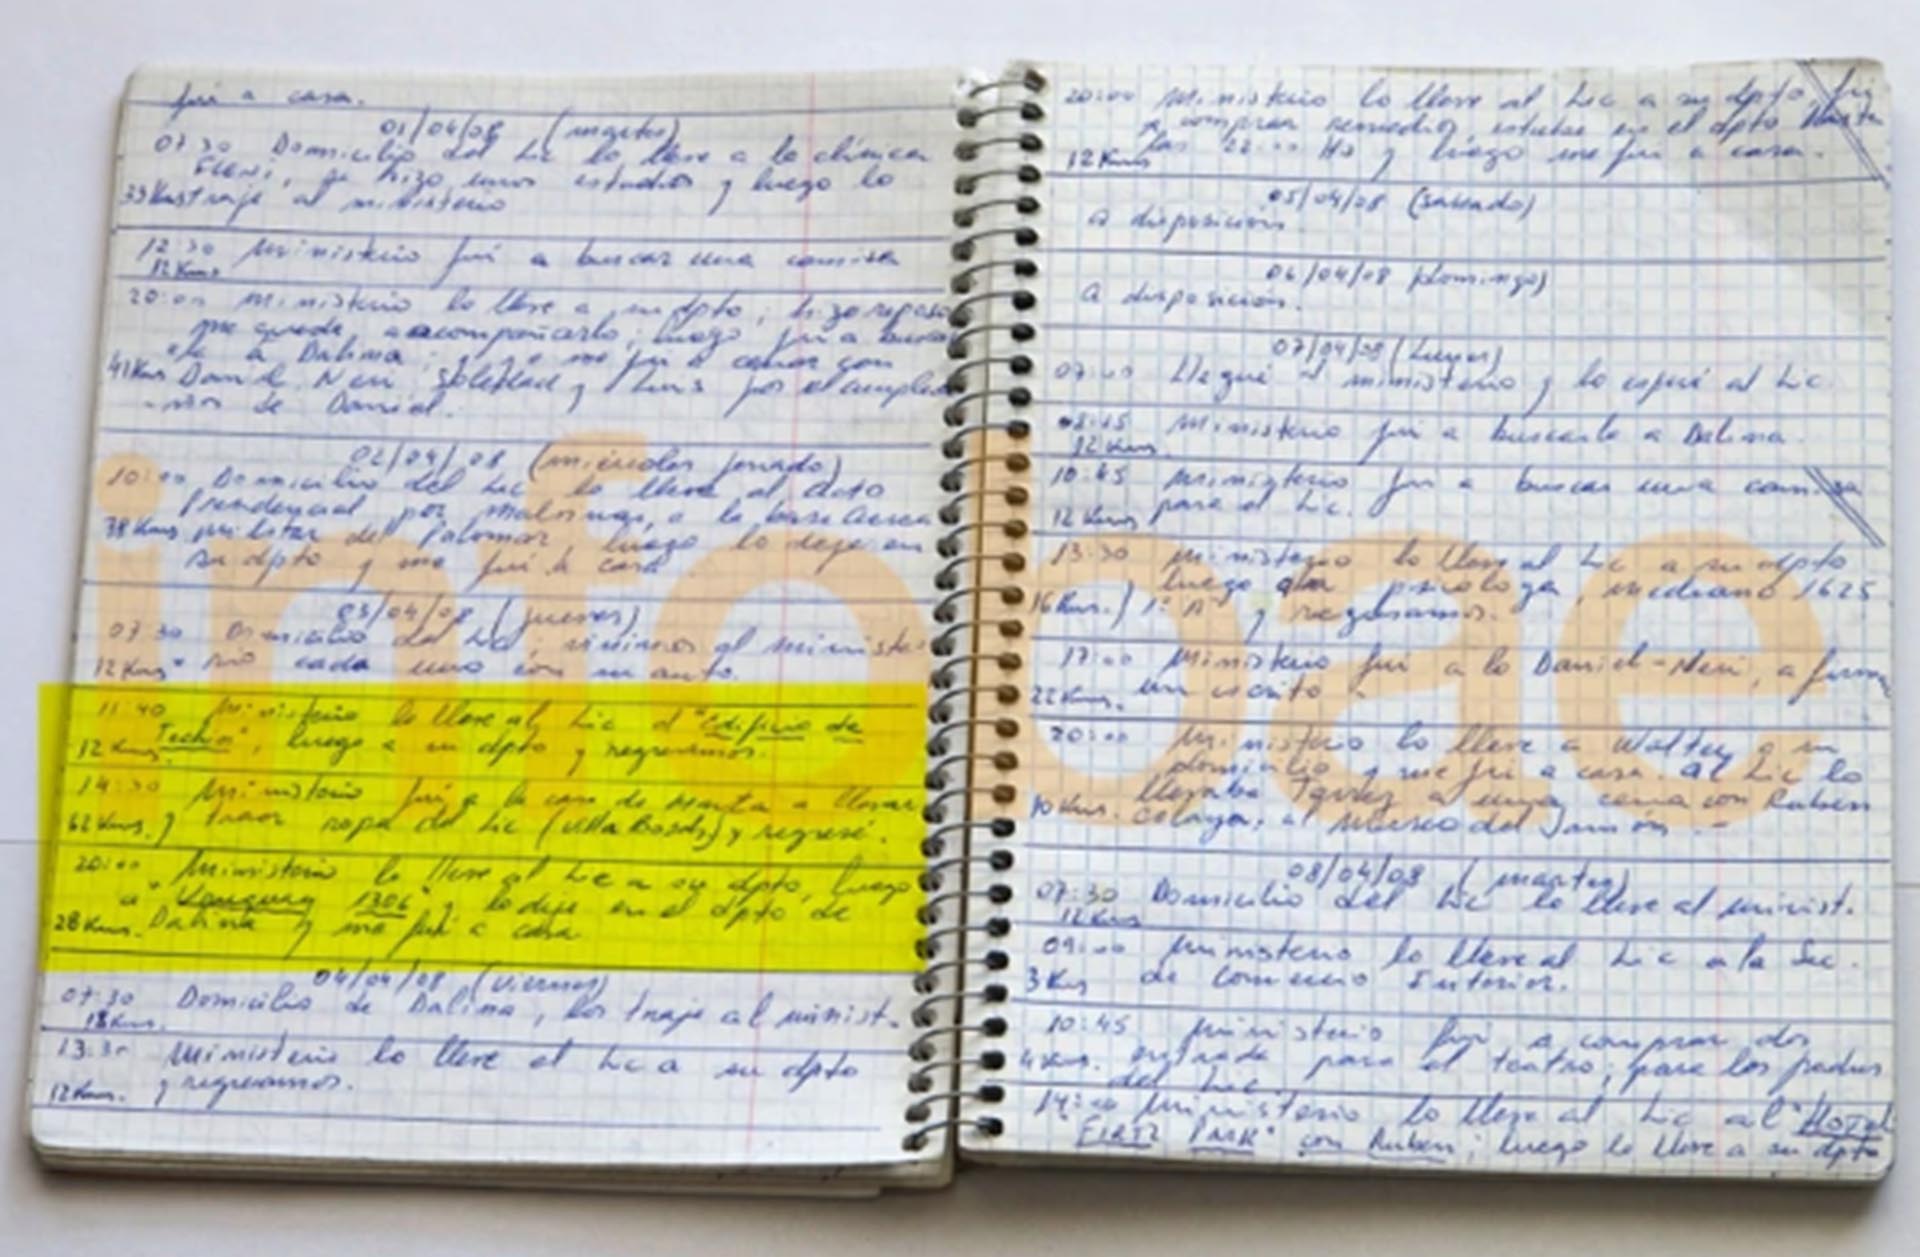 fui a casa.
01/04/08 (martes)
07:30 Domicilio del Lic lo lleve a la clínica
FLENI, se hizo unos estudios y luego lo
33 Kms traje al ministerio
12:30 Ministerio fui a buscar una camisa
12 Kms
20:00 Ministerio lo lleve a su dpto; hizo reposo
me quede, a acompañarlo; luego fui a buscar
a Dalina; y me fui a cenar con
41 Kms Daniel. Neri Soledad y Luis por el cumplea
-ños de Daniel.
02/04/08 (miércoles feriado)
10:00 Domicilio del Lic lo lleve al acto
Presidencial por malvinas, a la base Aerea
38 Kms militar del Palomar luego lo deje en
su dpto y me fui a casa.
03/04/08 (jueves)
07:30 Domicilio del Lic; vinimos al ministe-
12 Kms rio cada uno con su auto.
11:40 Ministerio lo lleve al Lic al "Edificio de
12 Kms. Techint", luego a su dpto y regresamos.
14:30 Ministerio fui a la casa de Marta a llevar
62 Kms. y traer ropa del Lic (Villa Bosch) y regresé.
20:00 Ministerio lo lleve al Lic a su dpto, luego
a "Uruguay 1306" y lo deje en el dpto de
28 Kms. Dalina y me fui a casa
04/04/08 (viernes)
07:30 Domicilio de Dalina, los traje al minist.
18 Kms.
13:30 Ministerio lo lleve al Lic a su dpto
12 Kms. y regresamos.
20:00 Ministerio lo lleve al Lic a su dpto, fui
a comprar remedios, estube en el dpto hasta
las 22:00 Hs y luego me fui a casa.
12 Kms
05/04/08 (sabado)
a disposición
06/04/08 (domingo)
a disposición.
07/04/08 (Lunes)
07:00 Llegué al ministerio y lo esperé al Lic.
08:15 Ministerio fui a buscarla a Dalina.
12 Kms.
10:45 Ministerio fui a buscar una camisa
12 Kms para el Lic.
13:30 Ministerio lo lleve al Lic a su dpto
luego psicologa, medrano 1625
16 Kms.) 1º "A" y regresamos.
17:00 Ministerio fui a lo Daniel-Neri, a firmar
22 Kms. un escrito.
20:00 Ministerio lo lleve a Walter a su
domicilio y me fui a casa. al Lic lo
llevaba a una cena con Ruben
10 Kms. al Museo del Jamón.-
08/04/08 (martes)
07:30 Domicilio del Lic lo lleve al minist.
12 Kms
09:00 Ministerio lo lleve al Lic a la Sec.
3 Kms de Comercio Interior.
10:45 Ministerio fui a comprar dos
4 Kms. entrada para el teatro; para los padres
del Lic
14:00 Ministerio lo lleve al Lic al "Hotel
FIRTZ PARK" con Ruben; luego lo lleve a su dpto
infobae